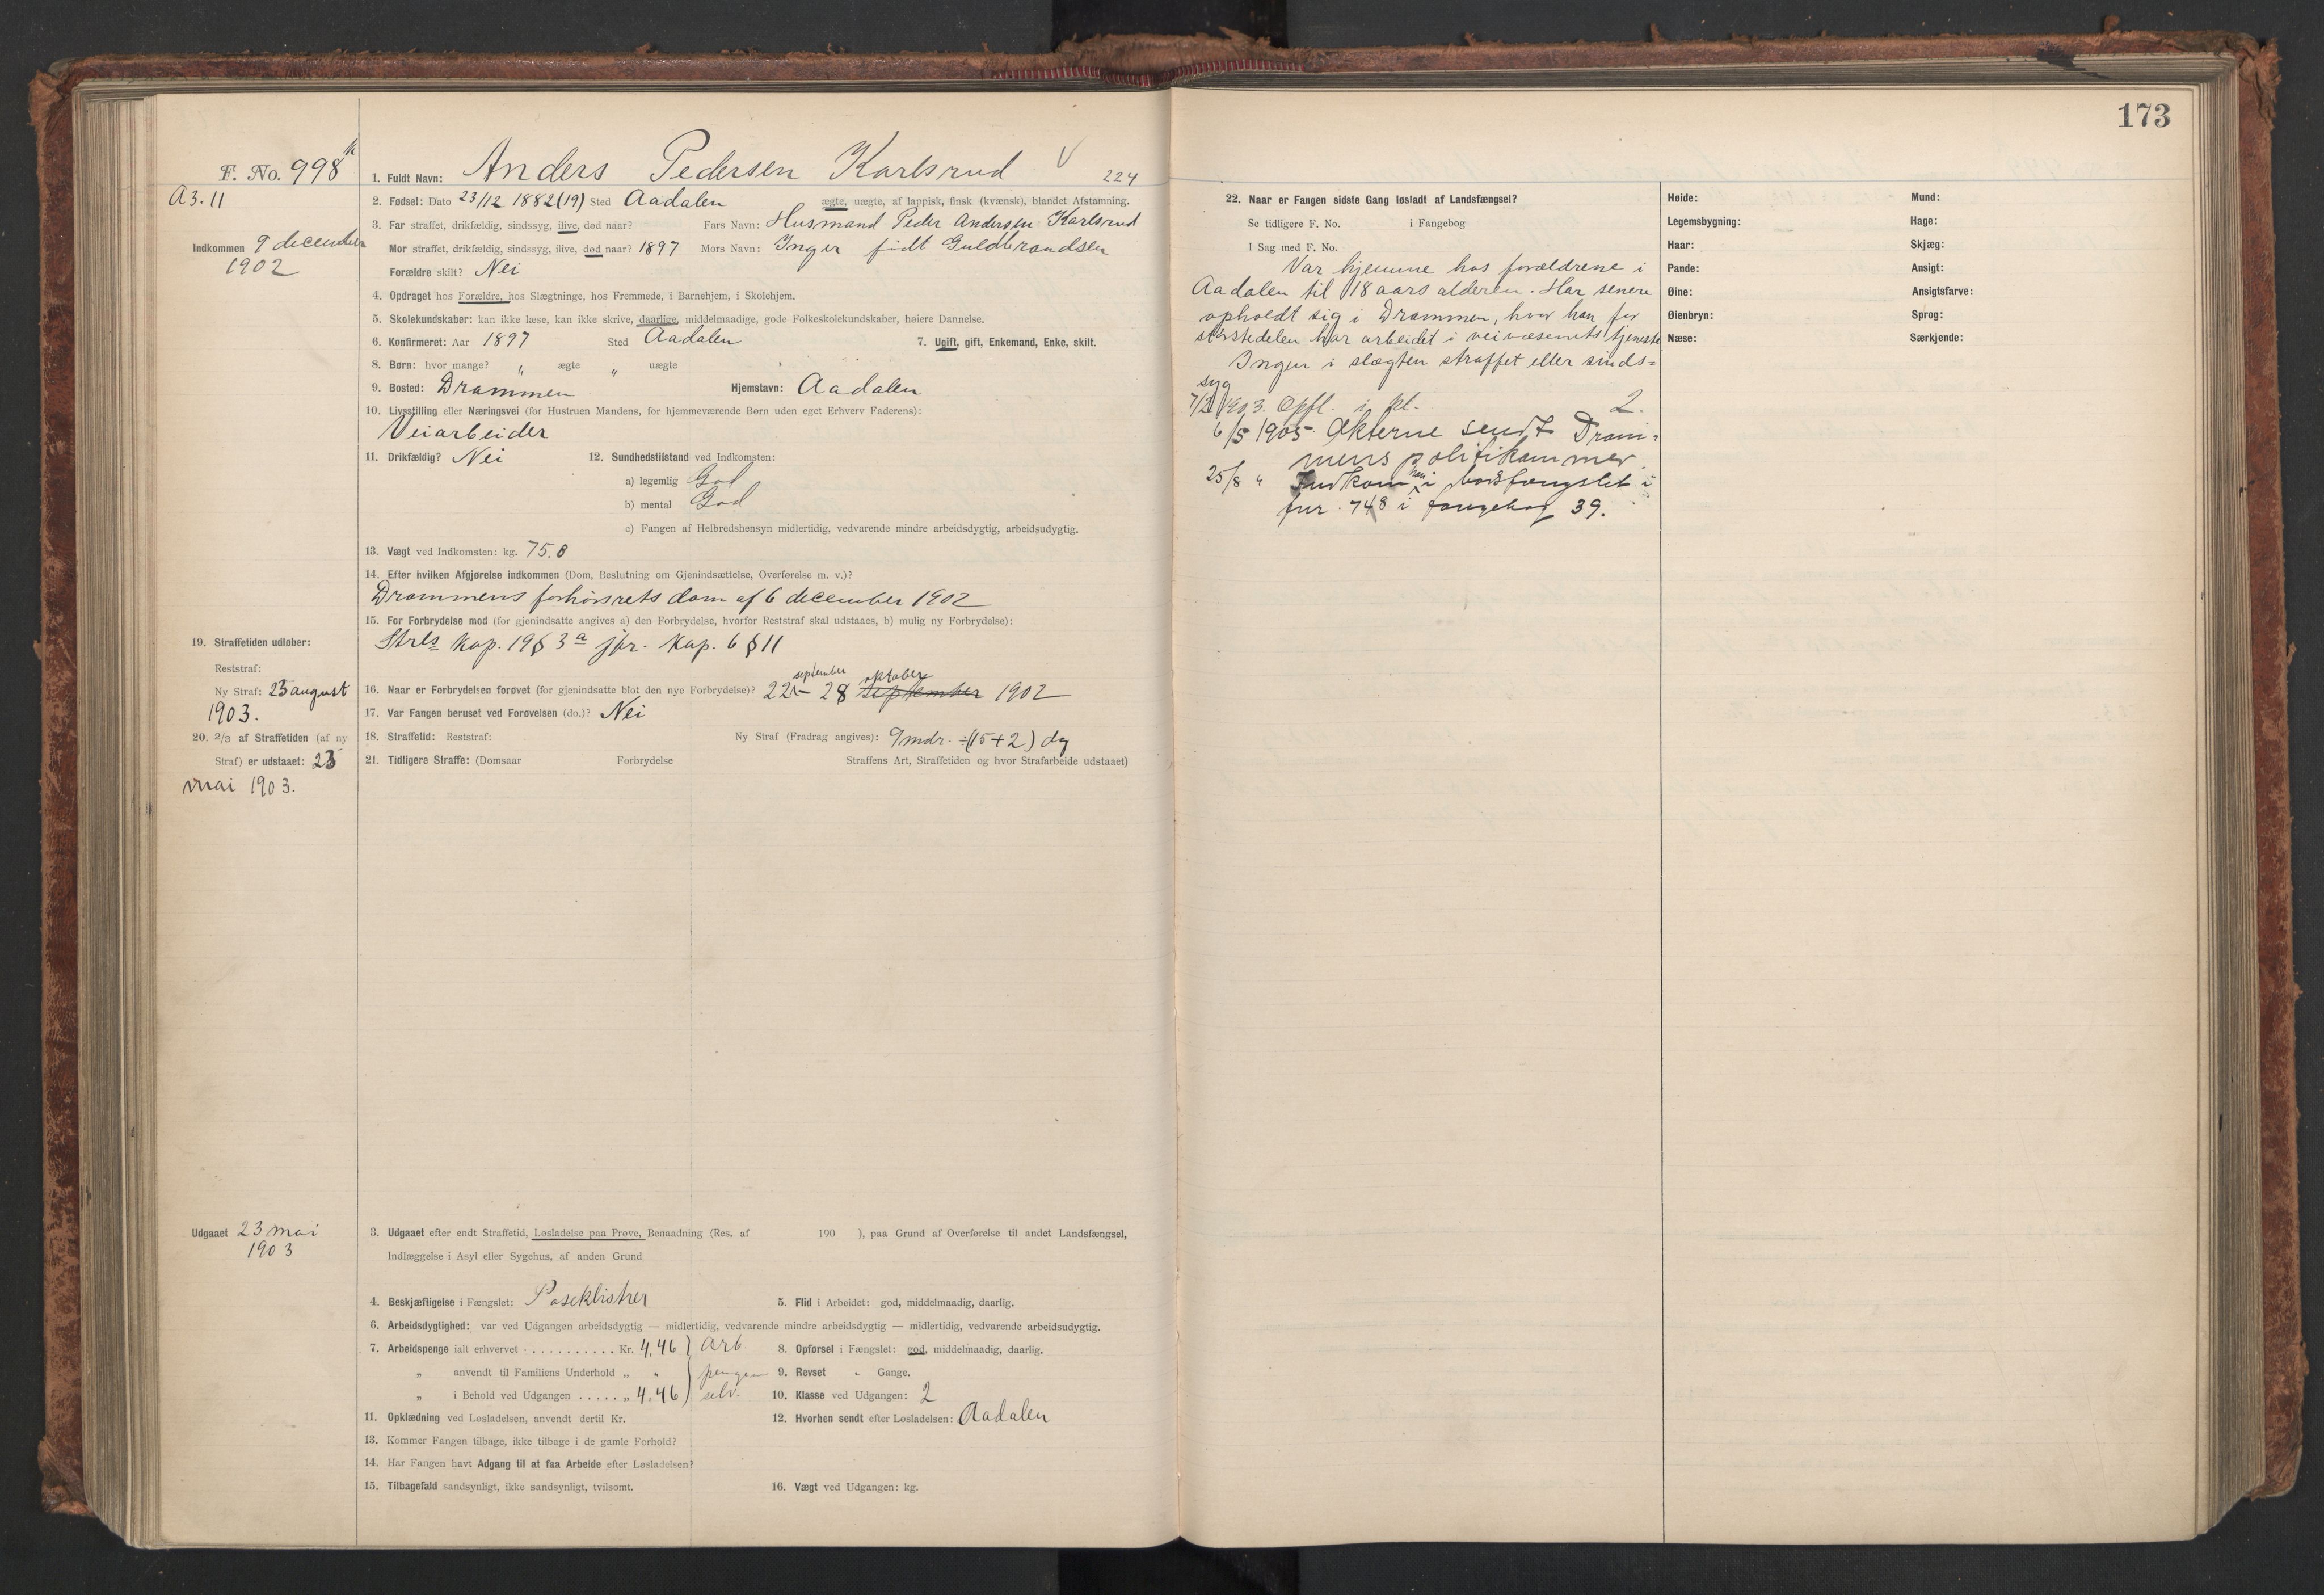 173
F. No. 998
A 3. 11
Indkommen 9 december
1902
19. Straffetiden udløber:
Reststraf:
Ny Straf: 23 august
1903.
20. 2/3 af Straffetiden (af ny
Straf) er udstaaet: 23
mai 1903.
1. Fuldt Navn: Anders Pedersen Karlsrud V 224
2. Fødsel: Dato 23/12 1882 (19) Sted Aadalen ægte, uægte, af lappisk, finsk (kvænsk), blandet Afstamning.
3. Far straffet, drikfældig, sindssyg, ilive, død naar? Fars Navn: Husmand Peder Andersen Karlsrud
Mor straffet, drikfældig, sindssyg, ilive, død naar? 1897 Mors Navn: Inger født Guldbrandsen
Forældre skilt? Nei
4. Opdraget hos Forældre, hos Slægtninge, hos Fremmede, i Barnehjem, i Skolehjem.
5. Skolekundskaber: kan ikke læse, kan ikke skrive, daarlige, middelmaadige, gode Folkeskolekundskaber, høiere Dannelse.
6. Konfirmeret: Aar 1897 Sted Aadalen 7. Ugift, gift, Enkemand, Enke, skilt.
8. Børn: hvor mange? " ægte " uægte
9. Bosted: Drammen Hjemstavn: Aadalen
10. Livsstilling eller Næringsvei (for Hustruen Mandens, for hjemmeværende Børn uden eget Erhverv Faderens):
Veiarbeider
11. Drikfældig? Nei 12. Sundhedstilstand ved Indkomsten:
a) legemlig God
b) mental God
c) Fangen af Helbredshensyn midlertidig, vedvarende mindre arbeidsdygtig, arbeidsudygtig.
13. Vægt ved Indkomsten: kg. 75.8
14. Efter hvilken Afgjørelse indkommen (Dom, Beslutning om Gjenindsættelse, Overførelse m. v.)?
Drammens forhørsrets dom af 6 december 1902
15. For Forbrydelse mod (for gjenindsatte angives a) den Forbrydelse, hvorfor Reststraf skal udstaaes, b) mulig ny Forbrydelse):
Strls Kap. 19 § 3 a jfr. Kap. 6 § 11
september oktober
16. Naar er Forbrydelsen forøvet (for gjenindsatte blot den nye Forbrydelse)? 22 - 28 september 1902
17. Var Fangen beruset ved Forøvelsen (do.)? Nei
18. Straffetid: Reststraf: Ny Straf (Fradrag angives): 9 mdr. ÷ (15+2) dg
21. Tidligere Straffe: (Domsaar Forbrydelse Straffens Art, Straffetiden og hvor Strafarbeide udstaaet)
Udgaaet 23 mai
1903
3. Udgaaet efter endt Straffetid, Løsladelse paa Prøve, Benaadning (Res. af 190 ), paa Grund af Overførelse til andet Landsfængsel,
Indlæggelse i Asyl eller Sygehus, af anden Grund
4. Beskjæftigelse i Fængslet: Poseklistrer 5. Flid i Arbeidet: god, middelmaadig, daarlig.
6. Arbeidsdygtighed: var ved Udgangen arbeidsdygtig — midlertidig, vedvarende mindre arbeidsdygtig — midlertidig, vedvarende arbeidsudygtig.
7. Arbeidspenge ialt erhvervet . . . . . . . . . . . Kr. 4,46 } Arb. 8. Opførsel i Fængslet: god, middelmaadig, daarlig.
" anvendt til Familiens Underhold " " pengene 9. Revset " Gange.
" i Behold ved Udgangen . . . . . " 4,46 } selv. 10. Klasse ved Udgangen: 2
11. Opklædning ved Løsladelsen, anvendt dertil Kr. 12. Hvorhen sendt efter Løsladelsen: Aadalen
13. Kommer Fangen tilbage, ikke tilbage i de gamle Forhold?
14. Har Fangen havt Adgang til at faa Arbeide efter Løsladelsen?
15. Tilbagefald sandsynligt, ikke sandsynligt, tvilsomt. 16. Vægt ved Udgangen: kg.
22. Naar er Fangen sidste Gang løsladt af Landsfængsel?
Se tidligere F. No. i Fangebog
I Sag med F. No.
Var hjemme hos forældrene i
Aadalen til 18 aars alderen. Har senere
opholdt sig i Drammen, hvor han for
størstedelen har arbeidet i veivæsenets tjeneste
Ingen i slægten straffet eller sinds=
syg
1903. Opfl. i kl. 2.
6/5 1905 Akterne sendt Dram=
mens politikammer
25/8 " Indkom han i bodsfængslet i
fnr. 748 i fangebog 39.
Høide:
Legemsbygning:
Haar:
Pande:
Øine:
Øienbryn:
Næse:
Mund:
Hage:
Skjæg:
Ansigt:
Ansigtsfarve:
Sprog:
Særkjende: